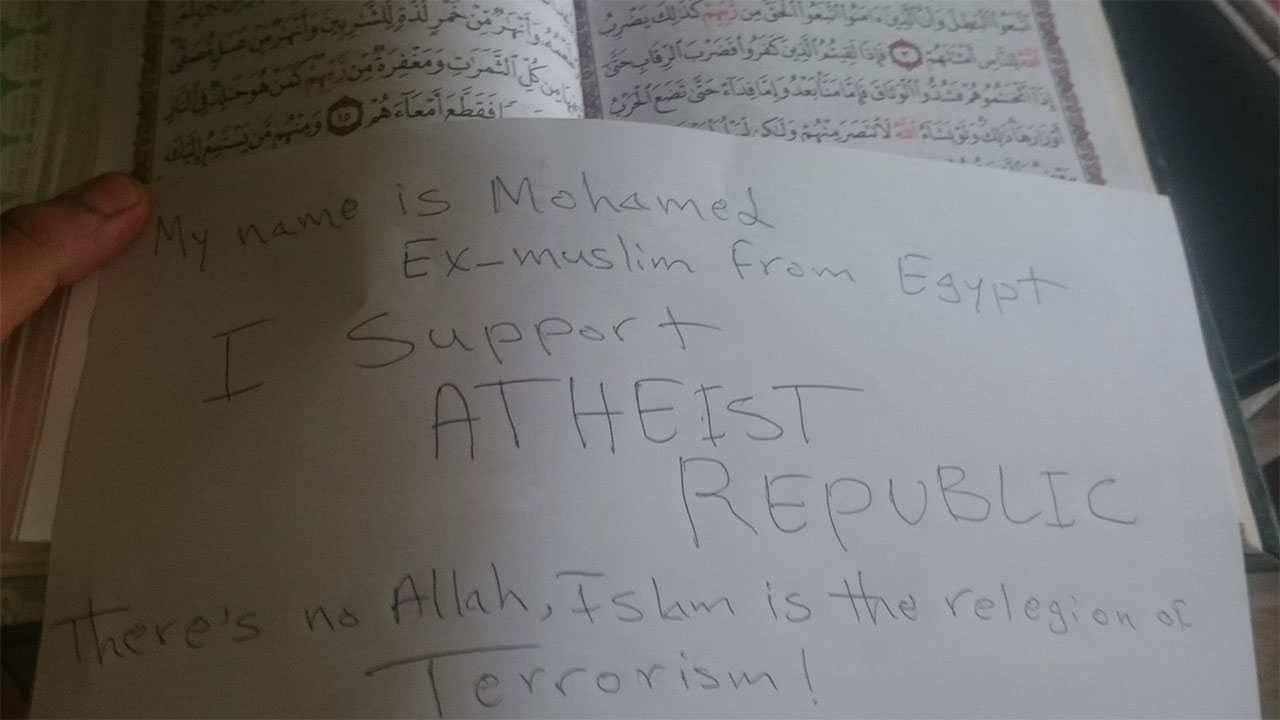 ٱتَّبَعُوا۟ ٱلْبَٰطِلَ وَأَنَّ ٱلَّذِينَ ءَامَنُوا۟ ٱتَّبَعُوا۟ ٱلْحَقَّ مِن رَّبِّهِمْ كَذَٰلِكَ يَضْرِبُ
ٱللَّهُ لِلنَّاسِ أَمْثَٰلَهُمْ ٣ فَإِذَا لَقِيتُمُ ٱلَّذِينَ كَفَرُوا۟ فَضَرْبَ ٱلرِّقَابِ حَتَّىٰٓ
إِذَآ أَثْخَنتُمُوهُمْ فَشُدُّوا۟ ٱلْوَثَاقَ فَإِمَّا مَنًّۢا بَعْدُ وَإِمَّا فِدَآءً حَتَّىٰ تَضَعَ ٱلْحَرْبُ
أَوْزَارَهَا ذَٰلِكَ وَلَوْ يَشَآءُ ٱللَّهُ لَٱنتَصَرَ مِنْهُمْ وَلَٰكِن
طَعْمُهُۥ وَأَنْهَٰرٌ مِّنْ خَمْرٍ لَّذَّةٍ لِّلشَّٰرِبِينَ وَأَنْهَٰرٌ مِّنْ عَسَلٍ مُّصَفًّى
مِن كُلِّ ٱلثَّمَرَٰتِ وَمَغْفِرَةٌ مِّن رَّبِّهِمْ كَمَنْ هُوَ خَٰلِدٌ فِى ٱلنَّارِ
فَقَطَّعَ أَمْعَآءَهُمْ ١٥ وَمِنْهُم مَّن يَسْتَمِعُ إِلَيْكَ
My name is Mohamed
Ex-muslim from Egypt
I Support
ATHEIST
REPUBLIC
There's no Allah, Islam is the relegion of
Terrorism!